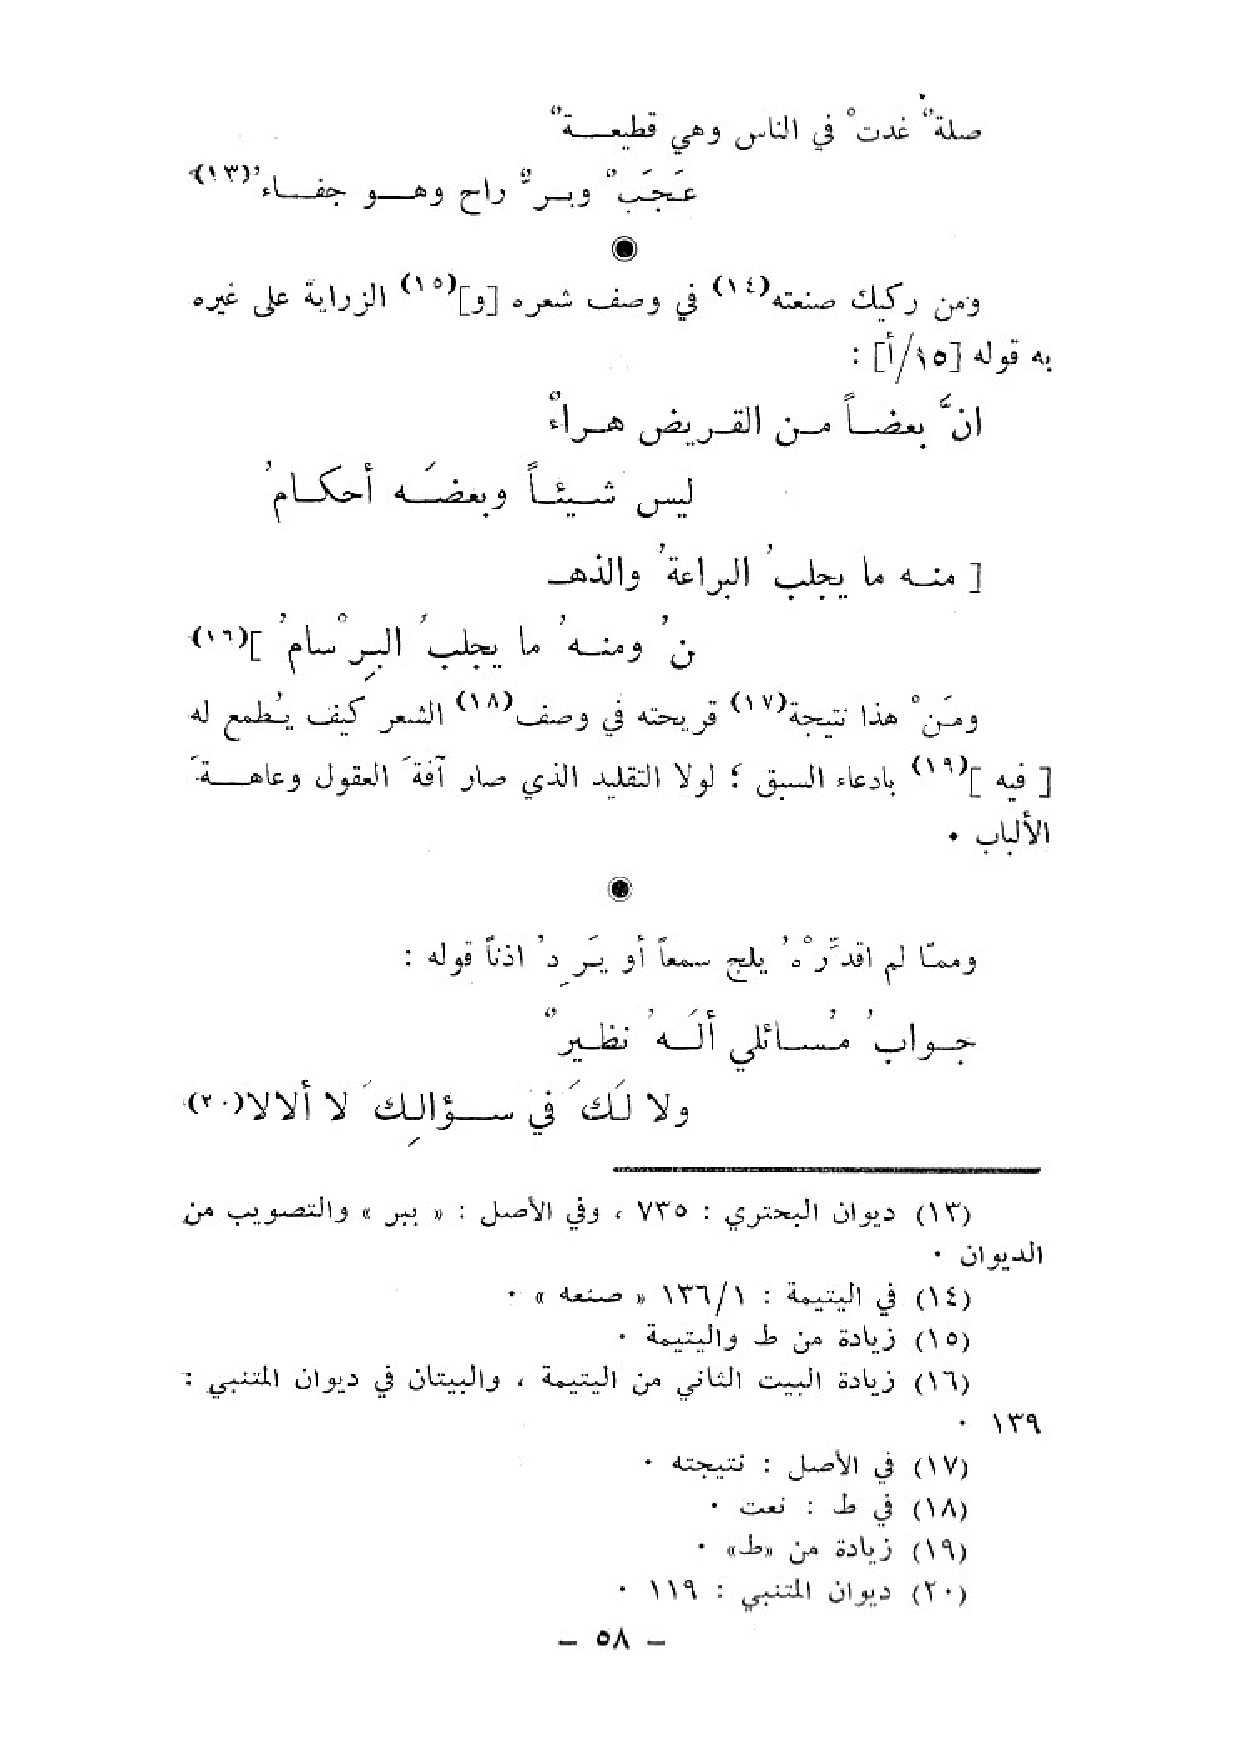 صلة" غدت° في الناس وهي قطيعـــة"
عَجَب" وبــر" راح وهـــو جفـــاء'(١٣)
ومن ركيك صنعته(١٤) في وصف شعره [و](١٥) الزراية على غيره
به قوله [١٥/أ] :
انَّ بعضــاً مــن القــريض هــراءٌ
ليس شــيئــاً وبعضَــه أحكــامُ
[ منــه ما يجلبُ البراعةُ والذهـ
نُ ومنــهُ ما يجلبُ البِرْسامُ ](١٦)
ومَنْ هذا نتيجة(١٧) قريحته في وصف(١٨) الشعر كيف يُطمع له
[ فيه ](١٩) بادعاء السبق ؛ لولا التقليد الذي صار آفةَ العقول وعاهــةَ
الألباب ٠
وممّا لم اقدِّرْهُ يلج سمعاً أو يَرِدُ اذناً قوله :
جــوابُ مُســائلي ألَــهُ نظــيرٌ
ولا لَكَ في ســـؤالِكَ لا ألالا(٢٠)
(١٣) ديوان البحتري : ٧٣٥ ، وفي الأصل : « ببر » والتصويب من
الديوان ٠
(١٤) في اليتيمة : ١٣٦/١ « صنعه » ٠
(١٥) زيادة من ط واليتيمة ٠
(١٦) زيادة البيت الثاني من اليتيمة ، والبيتان في ديوان المتنبي :
١٣٩ ٠
(١٧) في الأصل : نتيجته ٠
(١٨) في ط : نعت ٠
(١٩) زيادة من «ط» ٠
(٢٠) ديوان المتنبي : ١١٩ ٠
– ٥٨ –